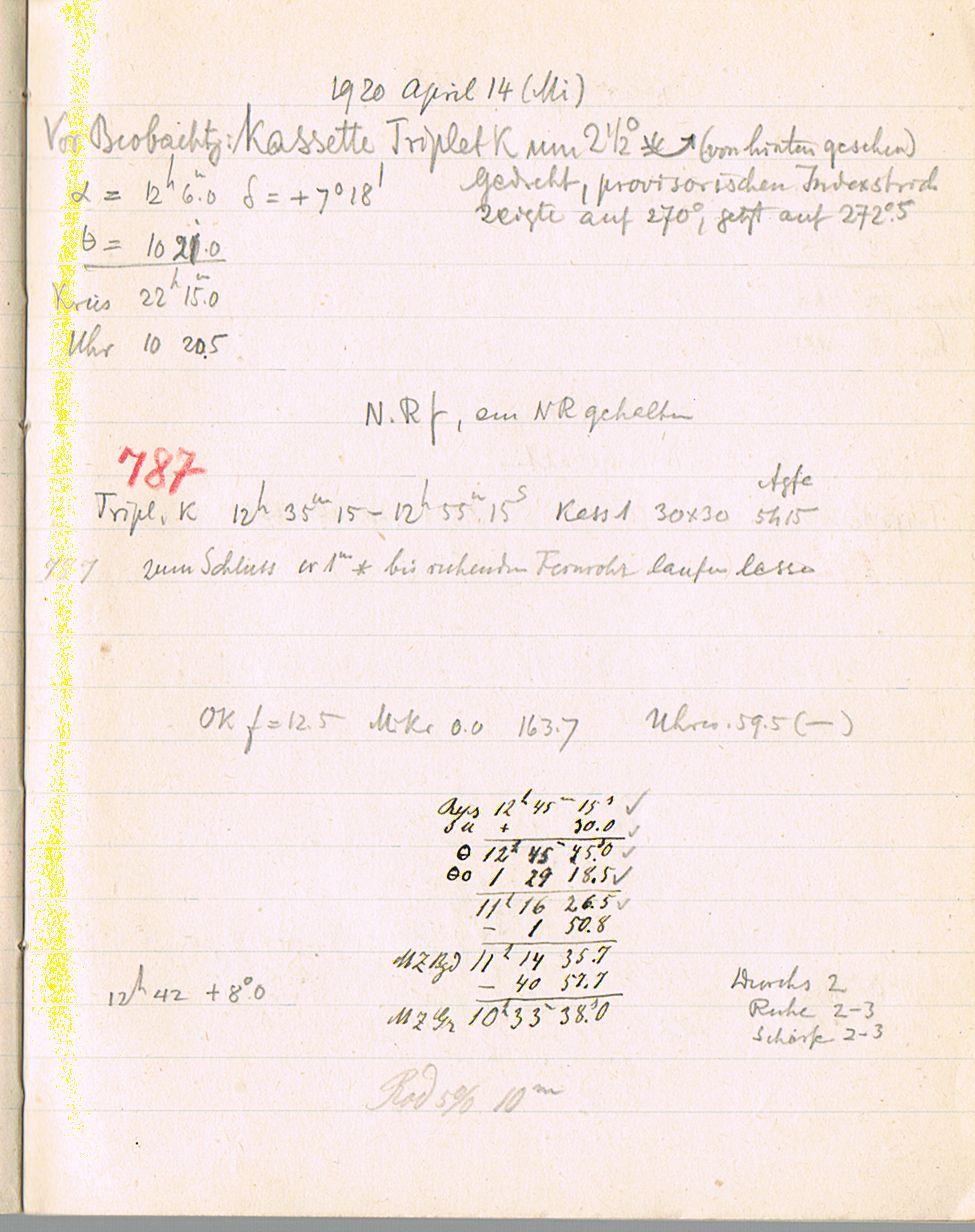 1920 April 14 (Mi)
Vor Beobachtg: Kassette Triplet K um 2 1/2° (von hinten gesehen)
α = 12h 6m.0 δ = +7° 18'
gedreht, provisorischen Indexstrich
zeigte auf 270°, jetzt auf 272°.5
θ = 10 21.0
Kreis 22h 15m.0
Uhr 10 20.5
N.R f, am NR gehalten
787
Agfa
Tripl. K 12h 35m 15 – 12h 55m 15s Kass 1 30x30 5h15
787 zum Schluss 1m * bis ruhenden Fernrohr laufen lassen
OK f = 12.5 M.Kr 0.0 163.7 Uhrv. 59.5 (—)
12h 45m 15s ✓
+ 30.0 ✓
θ 12h 45m 45s.0 ✓
θo 1 29 18.5 ✓
11h 16 26.5 ✓
– 1 50.8
MZ Bgd 11h 14 35.7
12h 42 +8°.0
– 40 57.7
MZ Gr 10h 33m 38s.0
Durchs 2
Ruhe 2-3
Schärfe 2-3
Rod 5% 10m